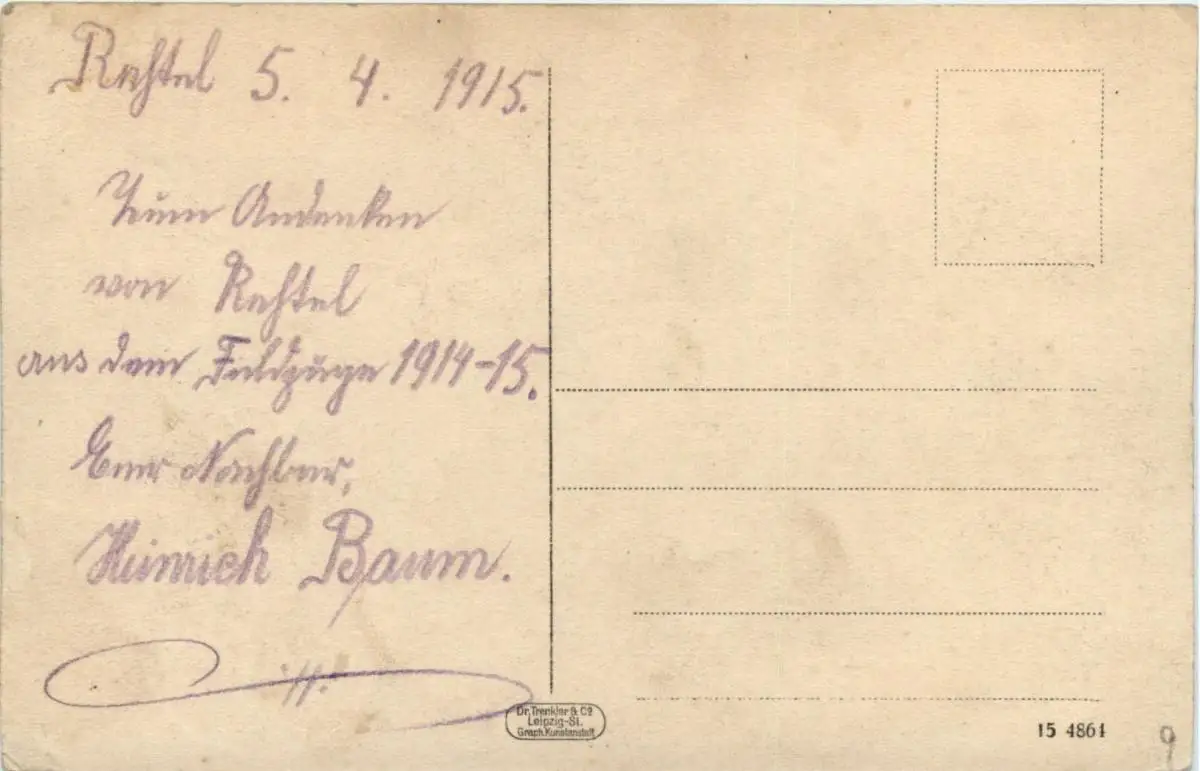 Rehtel 5. 4. 1915.
Zum Andenken
von Rehtel
aus dem Feldzuge 1914-15.
Euer Nachbar,
Heinrich Baum.
Dr. Trenkler & Co
Leipzig-St.
Graph. Kunstanstalt
15 4861
9